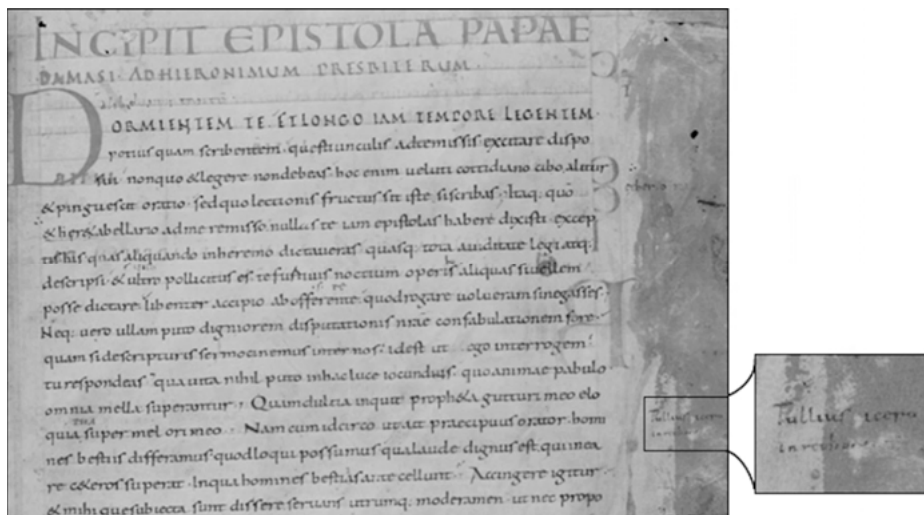 INCIPIT EPISTOLA PAPAE
DAMASI AD HIERONIMUM PRESBITERUM
DORMIENTEM TE ET LONGO IAM TEMPORE LEGENTEM
potius quam scribentem questiunculis adtemissis excitare dispo
sui nonquo & legere nondebeas hoc enim ueluti cottidiano cibo alitur
& pinguescit oratio sedquo lectionis fructus sit iste siscribas Itaq. quo
& her& abellario adme remisso nullas te iam epistolas habere dixisti excep
tis his quas aliquando inheremo dictaueras quasq. tota auiditate legi atq.
descripsi & ultro pollicitus es te furtiuis noctium operis aliquas siuellem
posse dictare libenter accipio ab offerente quod rogare uolueram sinegasses
Neq. uero ullam puto digniorem disputationis nrae confabulationem fore
quam si descripturis sermocinemus internos idest ut ego interrogem
tu respondeas qua uita nihil puto inhac luce iocundius quo animae pabulo
omnia mella superantur Quam dulcia inquit proph&a gutturi meo elo
quia super mel ori meo Nam cum idcirco ut ait praecipuus orator homi
nes bestiis differamus quod loqui possumus qua laude dignus est qui inea
re c&eros superat Inqua homines bestias antecellunt Accingere igitur
& mihi que subiecta sunt dissere seruans utrumq. moderamen ut nec propo
Tullius